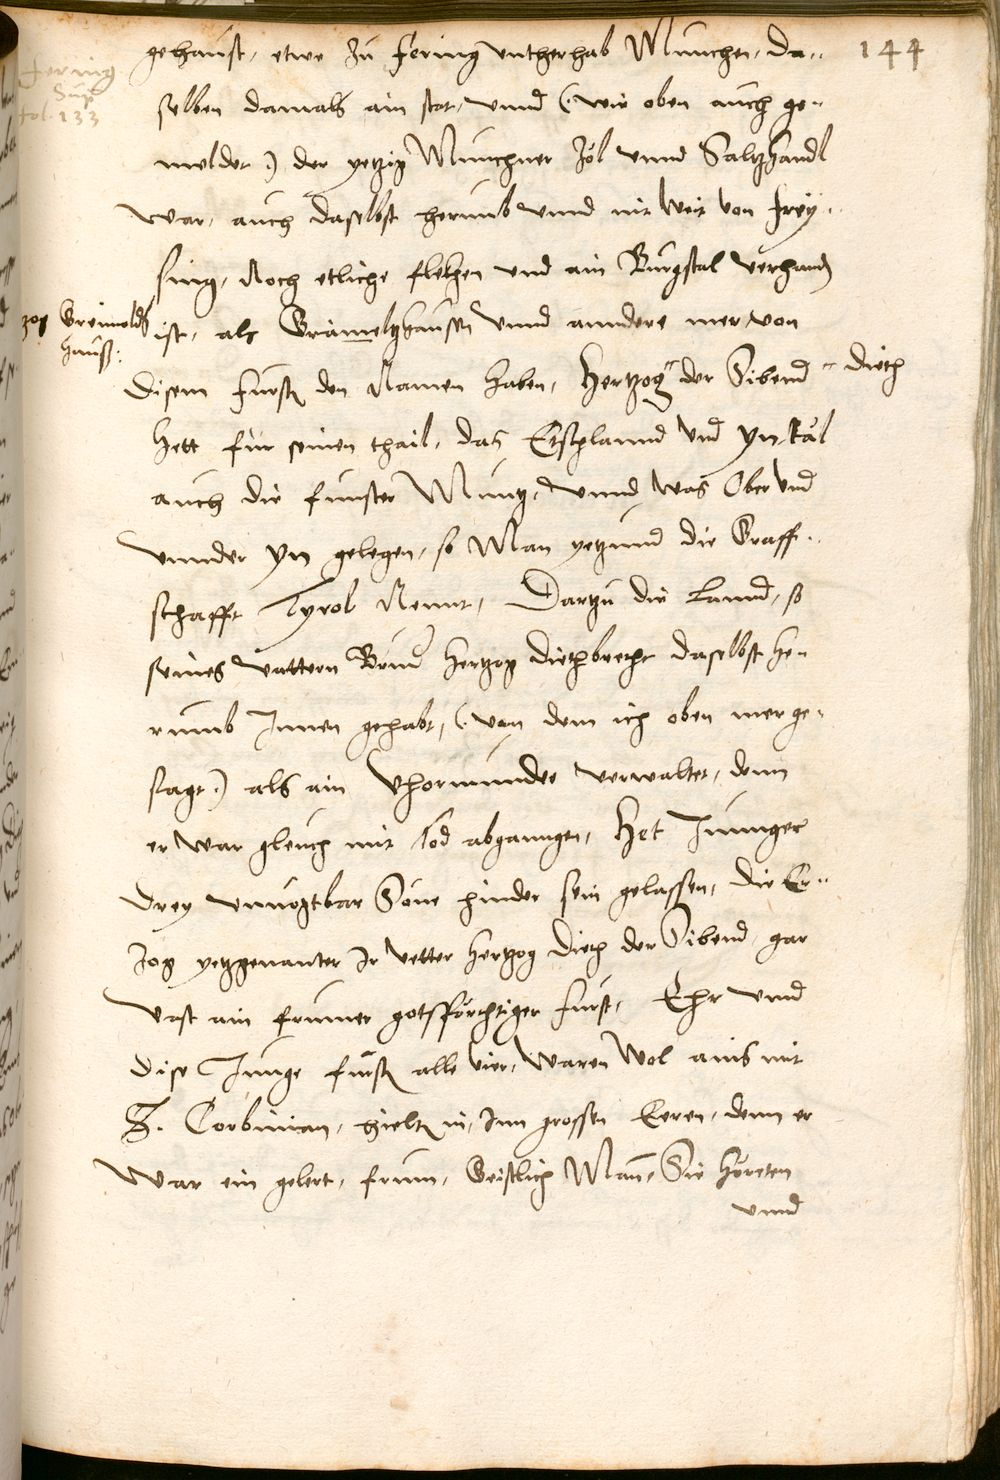 144
gehaust, etwe zu Fering untherhab Munchen, da-
Fering
Sup.
fol. 133
selben damals ain stat, vnnd (: wie oben auch ge-
meldet :) der yetzig Munchner Zol vnnd Saltzhandl
war, auch daselbst herumb vnnd nit weit von Frey-
sing, Noch etliche flekhen vnd ain Burgstal verhandn
Greimolds
hauß:
ist, als Grameltzhausen vnnd anndere mer, von
disem Fursten den Namen haben, Hertzog der Sibend
dieth
hett für seinen thail, das Etschlannd vnd Yn tal
auch die funster Muntz, vnnd was Ober vnd
vnnder Yn gelegen, so Man yetzund die Graff-
schafft Tyrol Nennt, Dartzu die Lannd, so
seines vattern Brud hertzog diethbrecht daselbst he-
rumb Innen gehabt, (: von dem ich oben mer ge-
sagt :) als ain Vhormunder verwaltet, denn
er war gleuch mit tod abganngen, Het Junnger
drey vnuogtbar Söne hinder sein gelassen, die Er-
zog yetzgenanter Ir vetter hertzog dieth der Sibend, gar
vast ain frumer gotsförchtiger Furst, Ehr vnnd
dise Junge furstn alle vier, waren wol ains mit
S. Corbinian, hieltn in, Inn grossen Eeren, denn er
war ein gelert, frum, Geistlich Man, Sie horeten
vnnd